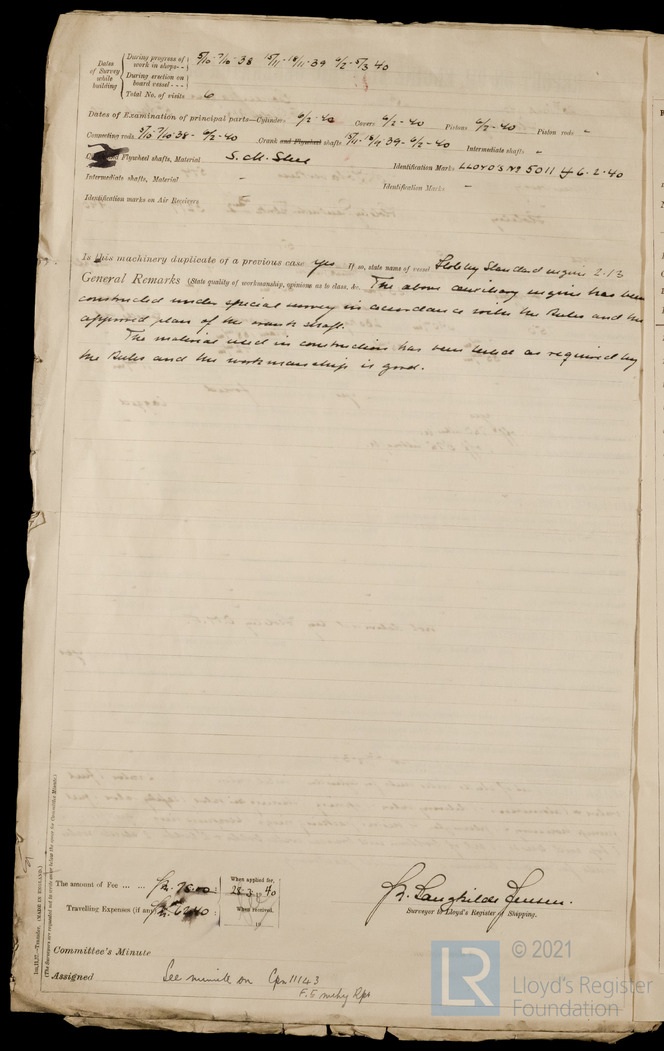 Dates of Survey while building
During progress of work in shops - - 5/10 - 7/10 - 38 15/11 - 18/11 - 39 6/2 - 5/3 40
During erection on board vessel - - -
Total No. of visits 6
Dates of Examination of principal parts—Cylinders 6/2 - 40 Covers 6/2 - 40 Pistons 6/2 - 40 Piston rods -
Connecting rods 5/10 - 7/10 38 - 6/2 - 40 Crank and Flywheel shafts 15/11 - 18/11 39 - 6/2 - 40 Intermediate shafts -
and Flywheel shafts, Material S.M. Steel Identification Marks LLOYD'S No 5011 6.2.40
Intermediate shafts, Material - Identification Marks -
Identification marks on Air Receivers -
Is this machinery duplicate of a previous case yes If so, state name of vessel Standard engine 2-13
General Remarks (State quality of workmanship, opinions as to class, &c. The above auxiliary engine has been
constructed under special survey in accordance with the Rules and the
approved plan of the crank shaft.
The material used in construction has been tested as required by
the Rules and the workmanship is good.
The amount of Fee ... ... Kr. 78.00 : When applied for, 28.3.1940
Travelling Expenses (if any) Kr. 62.40 : When received, 19
Surveyor to Lloyd's Register of Shipping.
Committee's Minute
Assigned See minute on Cpn 11143
F.E. mchy Rpt
(MADE IN ENGLAND.)
(The Surveyors are requested not to write on or below the space for Committee's Minute.)
© 2021
LR Lloyd's Register
Foundation